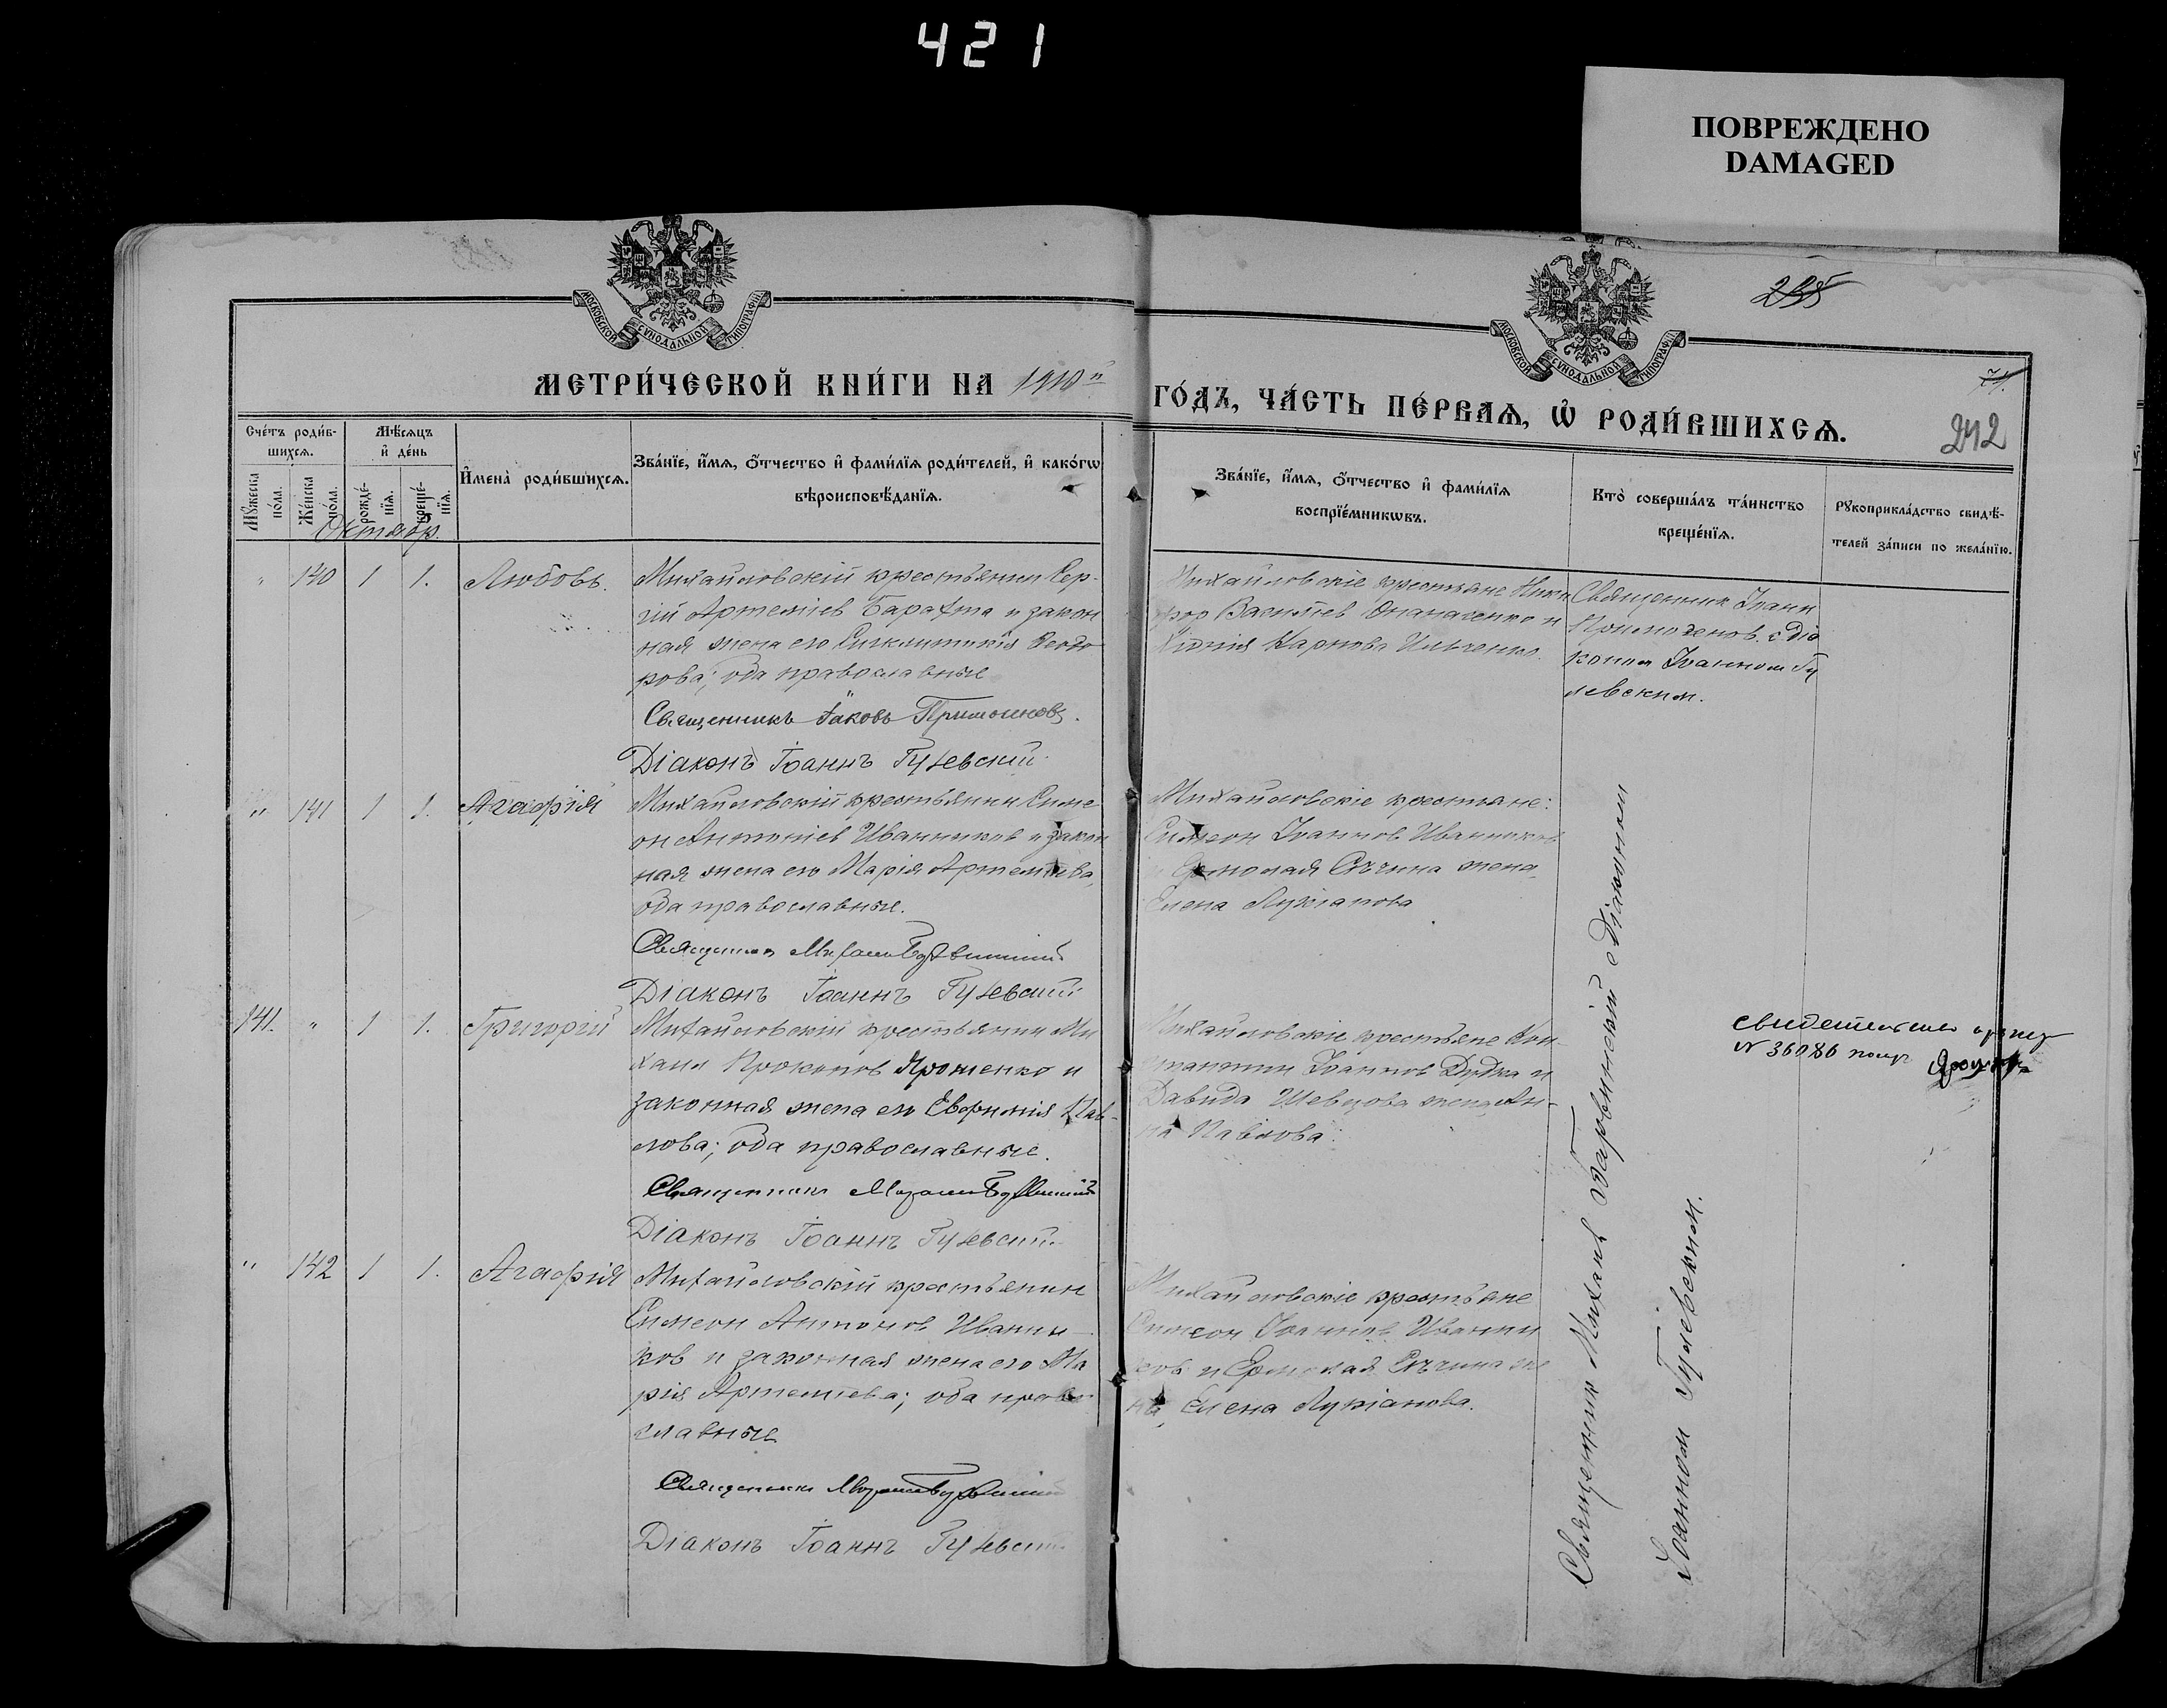 421
ПОВРЕЖДЕНО
DAMAGED
МОСКОВСКОЙ СѴНОДАЛЬНОЙ ТИПОГРАФІИ
МОСКОВСКОЙ СѴНОДАЛЬНОЙ ТИПОГРАФІИ
МЕТРИ́ЧЕСКОЙ КНИ́ГИ НА 1910й
ГО́ДЪ, ЧА́СТЬ ПЕ́РВАѦ, Ѡ҆ РОДИ́ВШИХСѦ.
242
Сче́тъ роди́в-
шихсѧ.
Мꙋ́жеска по́ла.
Же́нска по́ла.
Мѣ́сѧцъ
и҆ де́нь
рожде́-нїѧ.
креще́-нїѧ.
И҆мена̀ роди́вшихсѧ.
Зва́нїе, и҆́мѧ, ѻ҆́тчество и҆ фами́лїѧ роди́телей, и҆ како́гѡ
вѣроисповѣ́данїѧ.
Зва́нїе, и҆́мѧ, ѻ҆́тчество и҆ фами́лїѧ
воспрїе́мникѡвъ.
Кто̀ соверша́лъ та́инство
креще́нїѧ.
Рꙋкоприкла́дство свидѣ́-
телей за́писи по жела́нїю.
Октябр.
" 140 1 1. Любовь.
Михайловскій крестьянин Сер-
гій Артеміев Барахта и закон
ная жена его Синклитикія Феодо
рова; оба православные
Священникъ Іаковъ
Діаконъ Іоаннъ Гулевскій
Михайловскіе крестьяне Ники
фор Васильев Опанасенко и
Карпова Ильченко.
Священник Іоанн
с діа
коном Іоанном Гу
левским.
" 141 1 1. Агафія
Михайловскій крестьянин Симе
он Антоніев Иванников и закон
ная жена его Марія Артеміева,
оба православные.
Священник Михаил
Діаконъ Іоаннъ Гулевскій
Михайловскіе крестьяне:
Симеон Іоаннов Иванников
и Ермолая жена
Елена Лукіанова
141. " 1 1. Григорій
Михайловскій крестьянин Ми
хаил Прокопов Ярошенко и
законная жена его Евфимія Пав-
лова; оба православные.
Священник Михаил
Діаконъ Іоаннъ Гулевскій
Михайловскіе крестьяне Кон-
стантин Іоаннов Дудка и
Давида Шевцова жена Ан-
на Павлова.
свидетельство
N 36086
" 142 1 1. Агафія
Михайловскій крестьянин
Симеон Антонов Иванни-
ков и законная жена его Ма
рія Артеміева; оба право-
славные
Священник Михаил
Діаконъ Іоаннъ Гулевскій
Михайловскіе крестьяне
Симеон Іоаннов Иванни
ков и Ермолая же
на, Елена Лукіанова.
Священник Михаил с діаконом
Іоанном Гулевским.